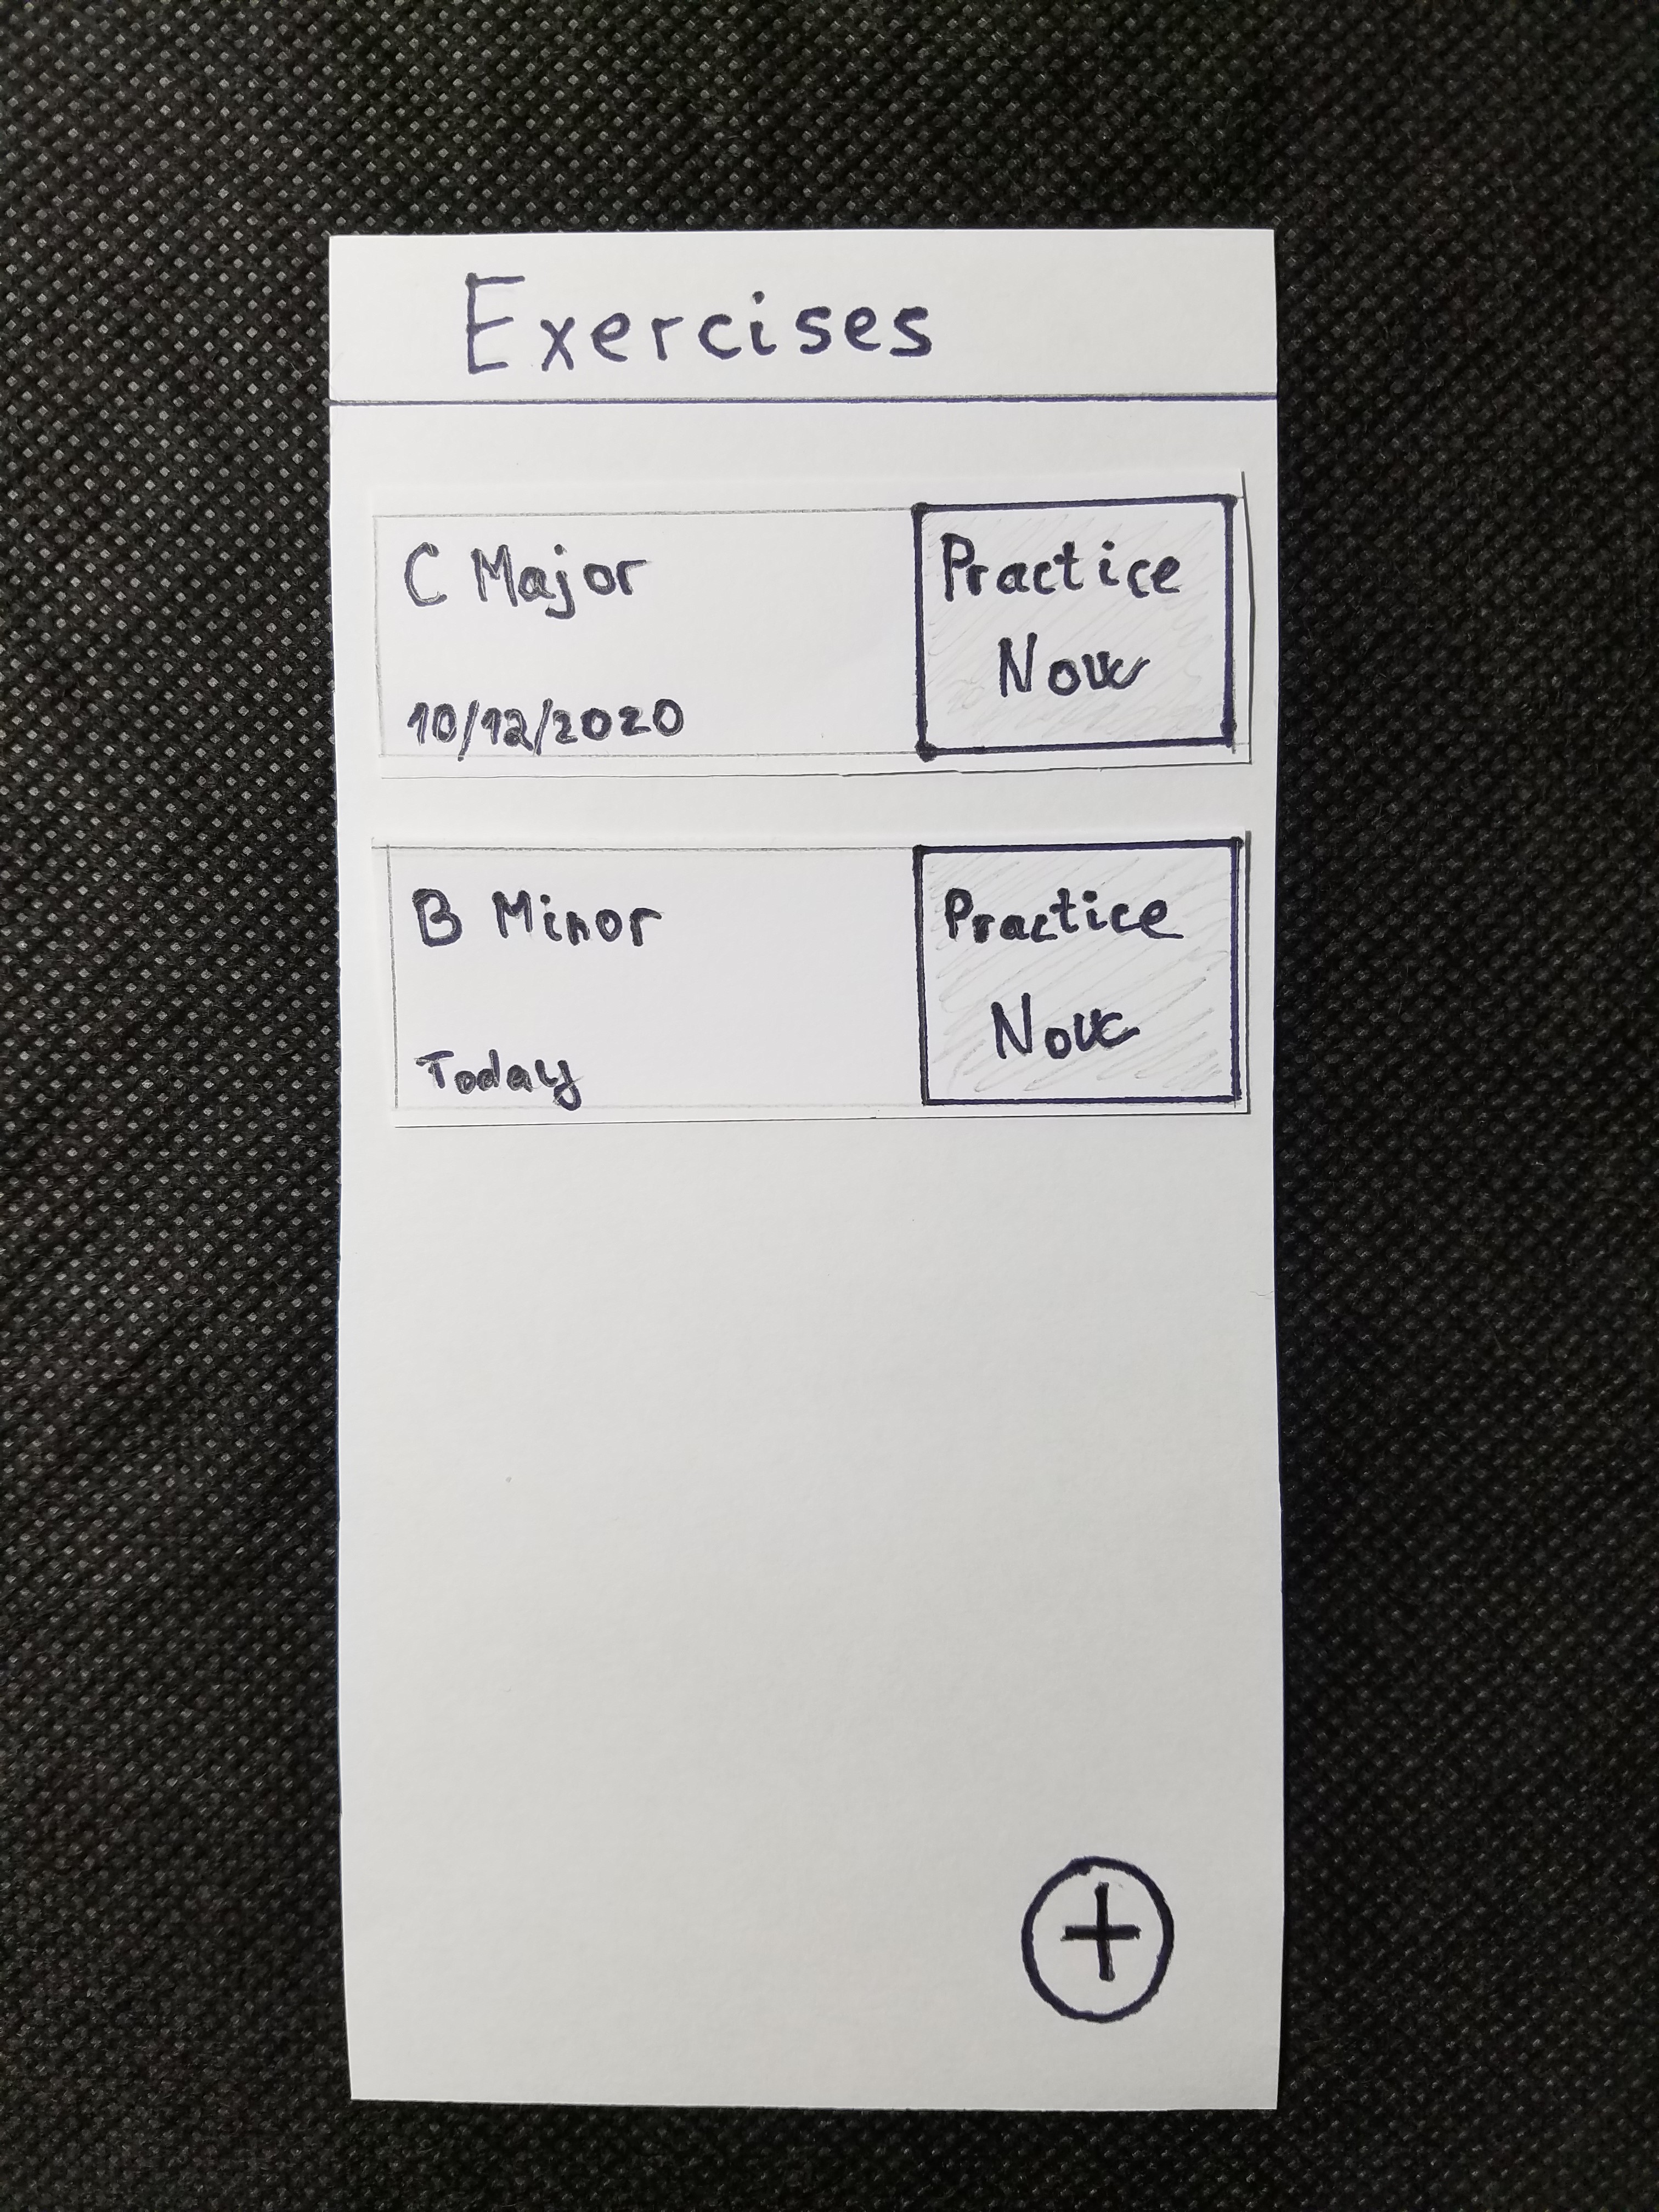 Exercises
C Major
10/12/2020
Practice
Now
B Minor
Today
Practice
Now
+